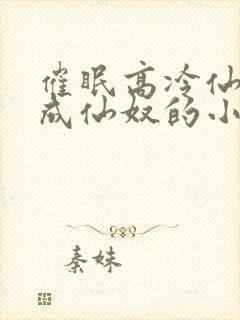 催眠高冷仙
成仙奴的小
秦妹